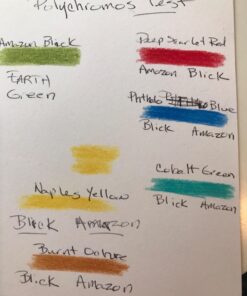 Polychromos Test
Amazon Blick
EARTH
Green
Deep Scarlet Red
Amazon Blick
Phthalo Blue
Blick Amazon
Cobalt Green
Blick Amazon
Naples Yellow
Blick Amazon
Burnt Ochre
Blick Amazon